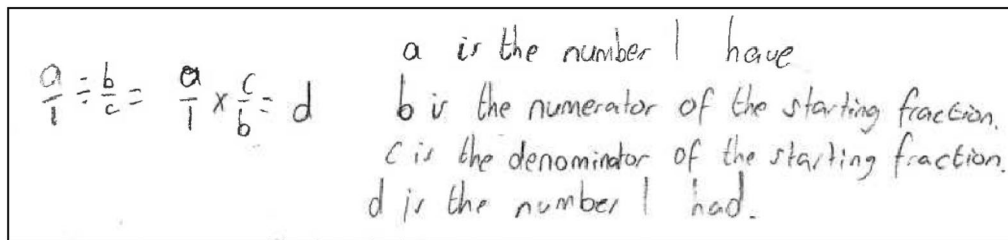 a is the number I have
a/1 ÷ b/c = a/1 × c/b = d
b is the numerator of the starting fraction.
c is the denominator of the starting fraction.
d is the number I had.